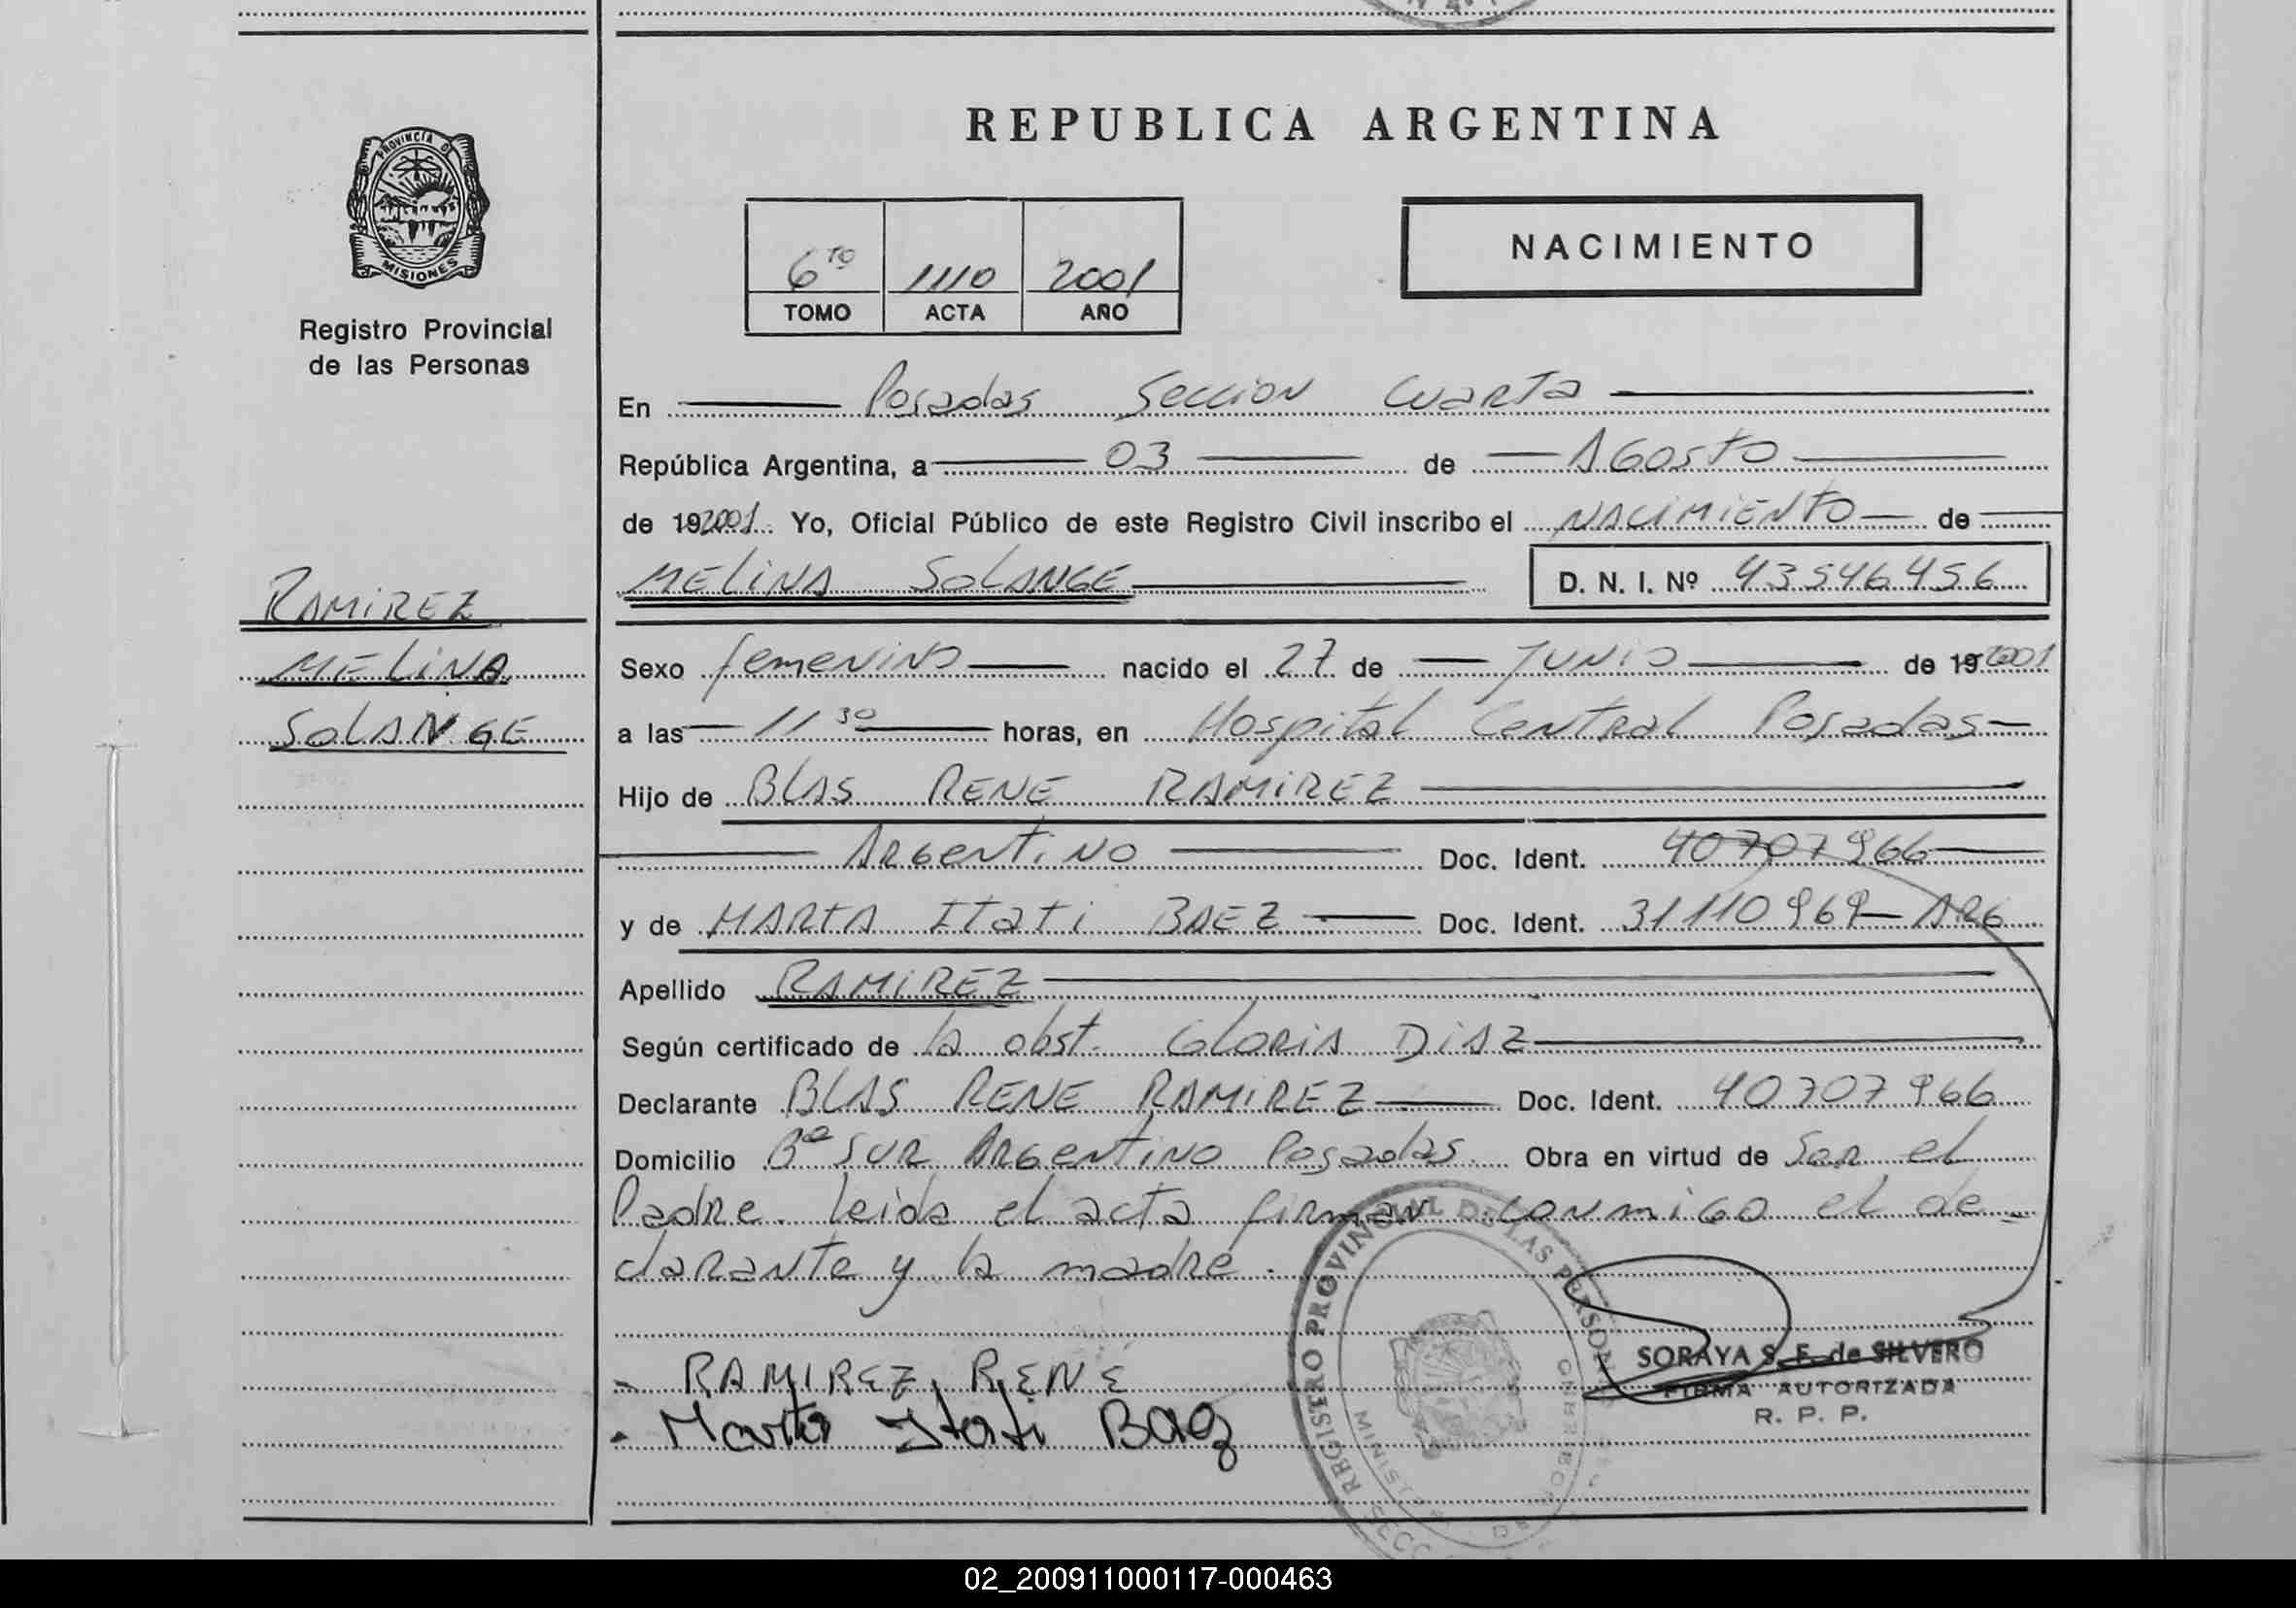 REPUBLICA ARGENTINA
PROVINCIA DE
MISIONES
Registro Provincial
de las Personas
6to 1110 2001
TOMO ACTA AÑO
NACIMIENTO
En Posadas Seccion Cuarta
República Argentina, a 03 de Agosto
de 192001 Yo, Oficial Público de este Registro Civil inscribo el NACIMIENTO de
MELINA SOLANGE D. N. I. Nº 43546456
RAMIREZ
MELINA
SOLANGE
Sexo femenino nacido el 27 de Junio de 192001
a las 11 30 horas, en Hospital Central Posadas
Hijo de BLAS RENE RAMIREZ
Argentino Doc. Ident. 40707966
y de MARTA Itati BAEZ Doc. Ident. 31110969 - ARG
Apellido RAMIREZ
Según certificado de la obst. Gloria Diaz
Declarante BLAS RENE RAMIREZ Doc. Ident. 40707966
Domicilio Bº SUR Argentino Posadas Obra en virtud de Ser el
Padre. leida el acta firman conmigo el de=
clarante y la madre.
REGISTRO PROVINCIAL DE LAS PERSONAS
- RAMIREZ, RENE
- Marta Itati Baez
SORAYA S. F. de SILVERO
FIRMA AUTORIZADA
R. P. P.
02_200911000117-000463